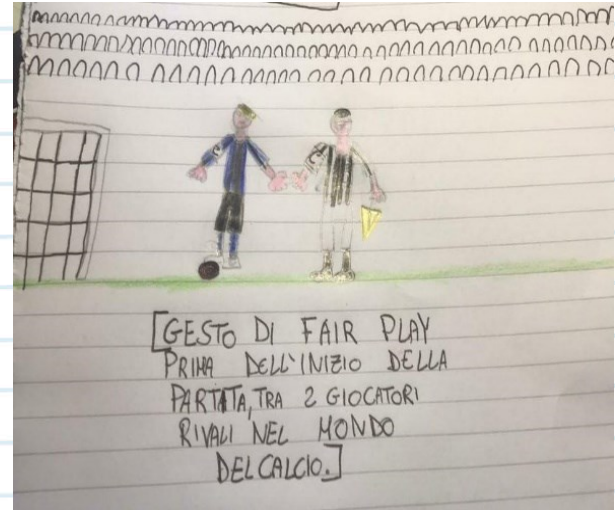 [GESTO DI FAIR PLAY
PRIMA DELL'INIZIO DELLA
PARTATA, TRA 2 GIOCATORI
RIVALI NEL MONDO
DEL CALCIO.]